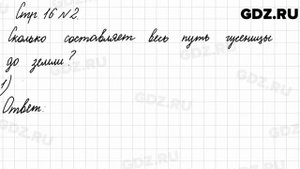 GDZ.RU
Стр 16 №2
Сколько составляет весь путь гусеницы
до земли?
1)
Ответ: